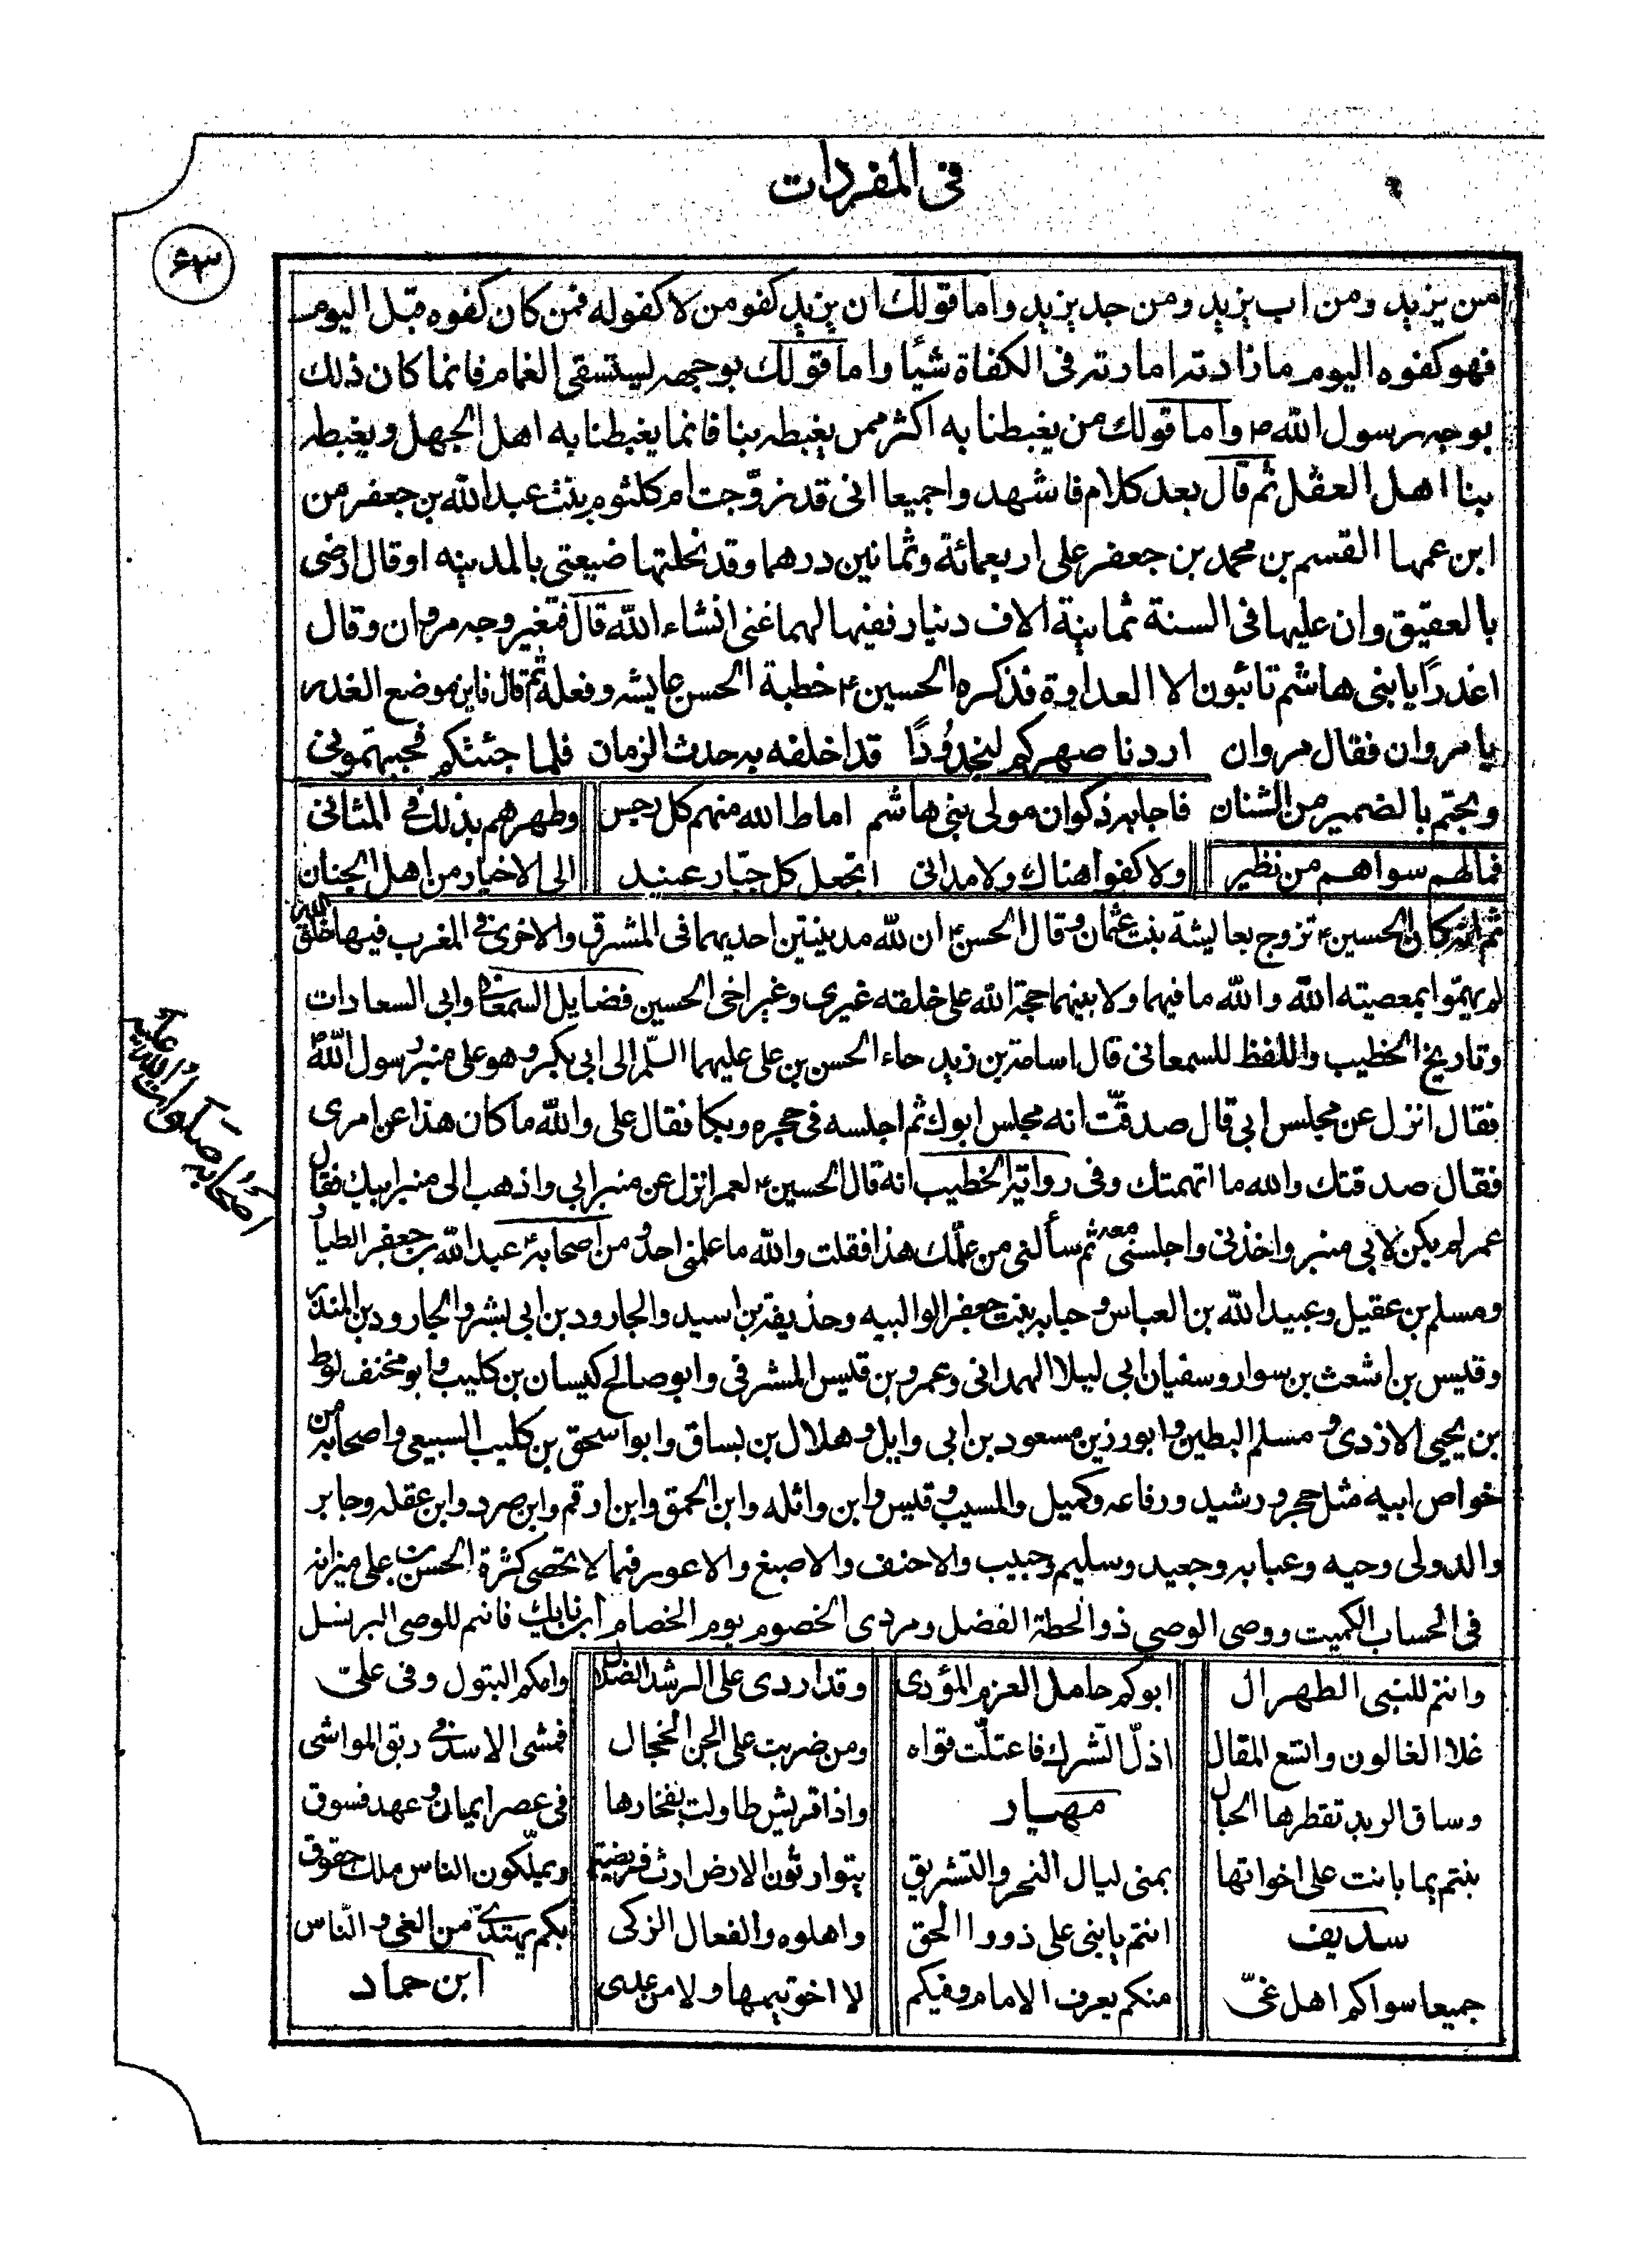 فى المفردات
٦٣
من يزيد ومن اب يزيد ومن جد يزيد واما قولك ان يزيد كفو من لا كفوله فمن كان كفوه قبل اليوم
فهو كفوه اليوم ما زادته امارته فى الكفاة شيأ واما قولك بوجهه ليستسقى الغمام فانما كان ذلك
بوجه رسول الله ص واما قولك من يغبطنا به اكثر ممن يغبطه بنا فانما يغبطنا به اهل الجهل ويغبطه
بنا اهل العقل ثم قال بعد كلام فاشهدوا جميعا انى قد زوّجت ام كلثوم بنت عبد الله بن جعفر من
ابن عمها القسم بن محمد بن جعفر على اربعمائة وثمانين درهما وقد نحلتها ضيعتى بالمدينه او قال ارضى
بالعقيق وان عليها فى السنة ثمانية الاف دنيار ففيها لهما غنى انشاء الله قال فتغير وجه مروان وقال
اغدرًا يا بنى هاشم تائبون الا العداوة فذكره الحسين ع خطبة الحسن عايشه وفعله ثم قال فاين موضع الغدر
يا مروان فقال مروان اردنا صهركم لنجد وُدًا قد اخلقه به حدث الزمان فلما جئتكم فجبهتمونى
وبجتم بالضمير من الشنان فاجابه ذكوان مولى بنى هاشم اماط الله منهم كل رجس وطهرهم بذلك فى المثانى
فما لهم سواهم من نظير ولا كفو هناك ولا مدانى اتجعل كل جبّار عنيد الى الاخيار من اهل الجنان
ثم انه كان الحسين ع تزوج بعايشة بنت عثمان وقال الحسن ع ان لله مدينتين احديهما فى المشرق والاخرى فى المغرب فيها خلق الله
لم يهمّوا بمعصيته الله والله ما فيهما ولا بينهما حجة الله على خلقه غيرى وغير اخى الحسين فضايل السمعانى وابى السعادات
وتاريخ الخطيب واللفظ للسمعانى قال اسامة بن زيد جاء الحسن بن على عليهما السّلم الى ابى بكر وهو على منبر رسول الله ص
فقال انزل عن مجلس ابى قال صدقت انه مجلس ابوك ثم اجلسه فى حجره وبكا فقال على والله ما كان هذا عن امرى
فقال صدقتك والله ما اتهمتك وفى رواية الخطيب انه قال الحسين ع لعمر انزل عن منبر ابى واذهب الى منبر ابيك فقال
عمر لم يكن لابى منبر واخذنى واجلسنى معه ثم سألنى من علّمك هذا فقلت والله ما علمنى احد ومن اصحابه ع عبد الله بن جعفر الطيار
ومسلم بن عقيل وعبيد الله بن العباس وحبابه بنت جعفر الوالبيه وحذيفة بن اسيد والجارود بن ابى بشر والجارود بن المنذر
وقيس بن اشعث بن سوار وسفيان ابى ليلا الهمدانى وعمرو بن قيس المشرفى وابو صالح كيسان بن كليب وابو مخنف لوط
بن يحيى الازدى ومسلم البطين وابو رزين مسعود بن ابى وايل وهلال بن يساق وابو اسحق بن كليب السبيعى واصحابه من
خواص ابيه مثل حجر ورشيد ورفاعه وكميل والمسيب وقيس وابن واثله وابن الحمق وابن ارقم وابن صرد وابن عقله وجابر
والدولى وحبه وعبابه وجعيد وسليم وحبيب والاحنف والاصبغ والاعور فما لا يحصى كثرة الحسن بن على ميزانه
فى الحساب الكميت ووصى الوصي ذو الخطة الفضل ومردى الخصوم يوم الخصام ابن نابك فانتم للوصى البر نسل
وانتم للنبى الطهر ال ابوكم حامل العزم المؤدى وقد اردى على الرشد الضلال وامكم البتول وفى علىّ
غلا الغالون واتسع المقال اذلّ الشرك فاعتلّت قواه ومن ضربت على الجن الحجال فمشى الاسد فى ربق المواشى
وساق الربد تقطرها الحبال مهيار واذا قريش طاولت بفخارها فى عصر ايمان وعهد فسوق
بنتم بما بانت على اخواتها بمنى ليال النحر والتشريق يتوارثون الارض ارث فريضة ويملّكون الناس ملك حقوق
سديف انتم يا بنى على ذووا الحق واهلوه والفعال الزكى بكم يهتدى من الغى والنّاس
جميعا سواكم اهل غىّ منكم يعرف الامام وفيكم لا اخو تيمها ولا من عدى ابن حماد
اصحابه صلوات الله عليه